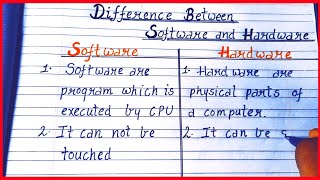 Difference Between
Software and Hardware
Software
1. Software are
program which is
executed by CPU
2. It can not be
touched
Hardware
1. Hardware are
physical parts of
a computer.
2. It can be